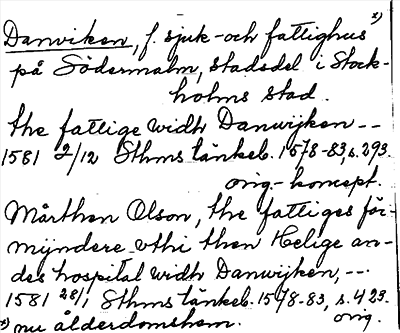 Danviken, f. sjuk- och fattighus x)
på Södermalm, stadsdel i Stock-
holms stad.
the fattige widh Danwijken --
1581 2/12 Sthms tänkeb. 1578-83, s. 293.
orig.-koncept.
Mårthen Olson, the fattiges för-
myndere vthi then Helige an-
des hospital widh Danwijken, --.
1581 28/1 Sthms tänkeb. 1578-83, s. 423.
x) nu ålderdomshem. orig.